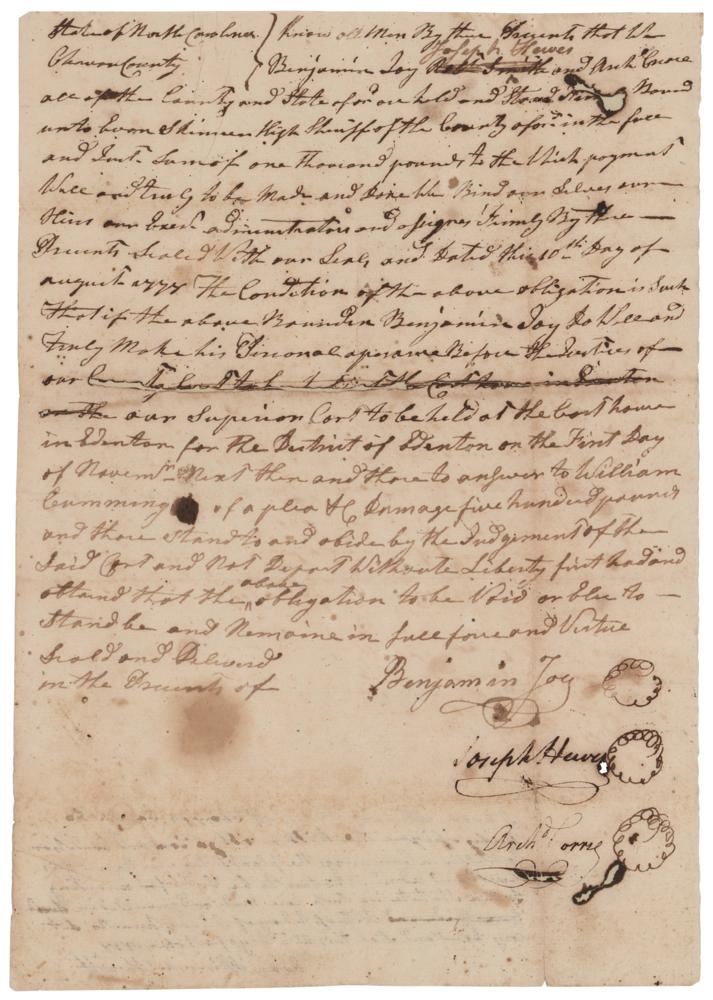 State of North Carolina } Know all Men By these Presents that We
Joseph Hewes
Chowan County } Benjamin Joy Robt Smith and Archd Corrie
all of the County and State afore held and Stand Bound
unto Evan Skinner High Sheriff of the County afore in the full
and Just Sum of one thousand pounds to the Which payment
Well and truly to be Made and Done We Bind our Selves our
Heirs our Exers administrators and assignes Firmly By these
Presents Sealed With our Seals and Dated this 10th Day of
august 1777 The Condition of the above obligation is Such
That if the above Bounden Benjamin Joy Do Well and
Truly Make his Personal apearance Before the Justices of
our County Court to be held at the Cort house in Edenton
on the our Superior Cort to be held at the Cort house
in Edenton for the District of Edenton on the First Day
of Novemr Next then and there to answer to William
Cumming of a plea &C Damage five hundred pounds
and there Stand to and abide by the Judgement of the
Said Cort and Not Depart Withoute Liberty first had and
above
obtaind that the obligation to be Void or Else to
Stand be and Remaine in full force and Virtue
Seald and Deliverd
in the Presents of Benjamin Joy
Joseph Hewes
Archd Corrie